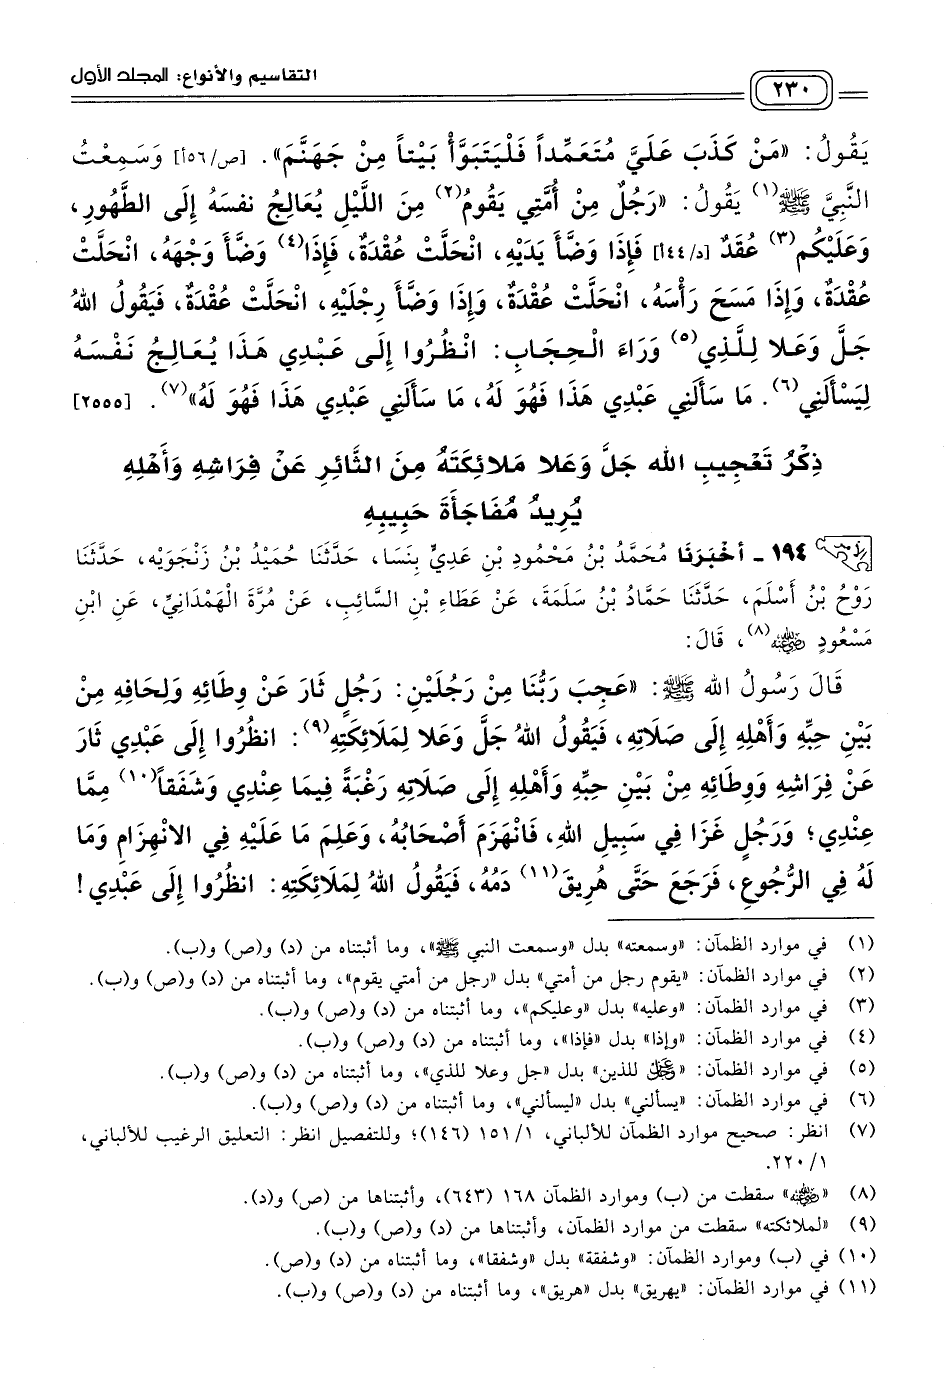 التقاسيم والأنواع: المجلد الأول
٢٣٠
يَقُولُ: «مَنْ كَذَبَ عَلَيَّ مُتَعَمِّداً فَلْيَتَبَوَّأْ بَيْتاً مِنْ جَهَنَّمَ». [ص/٥٦أ] وَسَمِعْتُ
النَّبِيَّ ﷺ(١) يَقُولُ: «رَجُلٌ مِنْ أُمَّتِي يَقُومُ(٢) مِنَ اللَّيْلِ يُعَالِجُ نَفْسَهُ إِلَى الطَّهُورِ،
وَعَلَيْكُم(٣) عُقَدٌ [د/٤٤أ] فَإِذَا وَضَّأَ يَدَيْهِ، انْحَلَّتْ عُقْدَةٌ، فَإِذَا(٤) وَضَّأَ وَجْهَهُ، انْحَلَّتْ
عُقْدَةٌ، وَإِذَا مَسَحَ رَأْسَهُ، انْحَلَّتْ عُقْدَةٌ، وَإِذَا وَضَّأَ رِجْلَيْهِ، انْحَلَّتْ عُقْدَةٌ، فَيَقُولُ اللهُ
جَلَّ وَعَلا لِلَّذِي(٥) وَرَاءَ الْحِجَابِ: انْظُرُوا إِلَى عَبْدِي هَذَا يُعَالِجُ نَفْسَهُ
لِيَسْأَلَنِي(٦). مَا سَأَلَنِي عَبْدِي هَذَا فَهُوَ لَهُ، مَا سَأَلَنِي عَبْدِي هَذَا فَهُوَ لَهُ»(٧). [٢٥٥٥]
ذِكْرُ تَعْجِيبِ الله جَلَّ وَعَلا مَلائِكَتَهُ مِنَ الثَّائِرِ عَنْ فِرَاشِهِ وَأَهْلِهِ
يُرِيدُ مُفَاجَأَةَ حَبِيبِهِ
١٩٤ - أَخْبَرَنَا مُحَمَّدُ بْنُ مَحْمُودِ بْنِ عَدِيٍّ بِنَسَا، حَدَّثَنَا حُمَيْدُ بْنُ زَنْجَوَيْه، حَدَّثَنَا
رَوْحُ بْنُ أَسْلَمَ، حَدَّثَنَا حَمَّادُ بْنُ سَلَمَةَ، عَنْ عَطَاءِ بْنِ السَّائِبِ، عَنْ مُرَّةَ الْهَمْدَانِيِّ، عَنِ ابْنِ
مَسْعُودٍ رضي الله عنه(٨)، قَالَ:
قَالَ رَسُولُ الله ﷺ: «عَجِبَ رَبُّنَا مِنْ رَجُلَيْنِ: رَجُلٍ ثَارَ عَنْ وِطَائِهِ وَلِحَافِهِ مِنْ
بَيْنِ حِبِّهِ وَأَهْلِهِ إِلَى صَلَاتِهِ، فَيَقُولُ اللهُ جَلَّ وَعَلا لِمَلَائِكَتِهِ(٩): انظُرُوا إِلَى عَبْدِي ثَارَ
عَنْ فِرَاشِهِ وَوِطَائِهِ مِنْ بَيْنِ حِبِّهِ وَأَهْلِهِ إِلَى صَلَاتِهِ رَغْبَةً فِيمَا عِنْدِي وَشَفَقاً(١٠) مِمَّا
عِنْدِي؛ وَرَجُلٍ غَزَا فِي سَبِيلِ اللهِ، فَانْهَزَمَ أَصْحَابُهُ، وَعَلِمَ مَا عَلَيْهِ فِي الانْهِزَامِ وَمَا
لَهُ فِي الرُّجُوعِ، فَرَجَعَ حَتَّى هُرِيقَ(١١) دَمُهُ، فَيَقُولُ اللهُ لِمَلَائِكَتِهِ: انظُرُوا إِلَى عَبْدِي!
(١) في موارد الظمآن: «وسمعته» بدل «وسمعت النبي ﷺ»، وما أثبتناه من (د) و(ص) و(ب).
(٢) في موارد الظمآن: «يقوم رجل من أمتي» بدل «رجل من أمتي يقوم»، وما أثبتناه من (د) و(ص) و(ب).
(٣) في موارد الظمآن: «وعليه» بدل «وعليكم»، وما أثبتناه من (د) و(ص) و(ب).
(٤) في موارد الظمآن: «وإذا» بدل «فإذا»، وما أثبتناه من (د) و(ص) و(ب).
(٥) في موارد الظمآن: «عز وجل للذين» بدل «جل وعلا للذي»، وما أثبتناه من (د) و(ص) و(ب).
(٦) في موارد الظمآن: «يسألني» بدل «ليسألني»، وما أثبتناه من (د) و(ص) و(ب).
(٧) انظر: صحيح موارد الظمآن للألباني، ١/ ١٥١ (١٤٦)؛ وللتفصيل انظر: التعليق الرغيب للألباني،
١/ ٢٢٠.
(٨) «رضي الله عنه» سقطت من (ب) وموارد الظمآن ١٦٨ (٦٤٣)، وأثبتناها من (ص) و(د).
(٩) «لملائكته» سقطت من موارد الظمآن، وأثبتناها من (د) و(ص) و(ب).
(١٠) في (ب) وموارد الظمآن: «وشفقة» بدل «وشفقا»، وما أثبتناه من (د) و(ص).
(١١) في موارد الظمآن: «يهريق» بدل «هريق»، وما أثبتناه من (د) و(ص) و(ب).